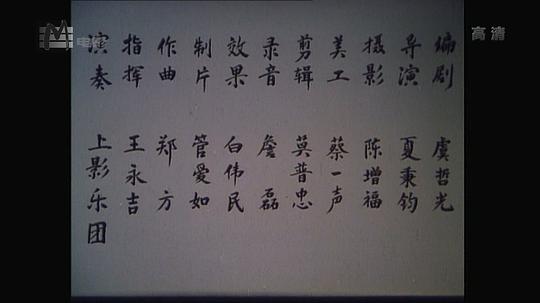 编剧 虞哲光
导演 夏秉钧
摄影 陈增福
美工 蔡一声
剪辑 莫普忠
录音 詹磊
效果 白伟民
制片 管爱如
作曲 郑方
指挥 王永吉
演奏 上影乐团
高清